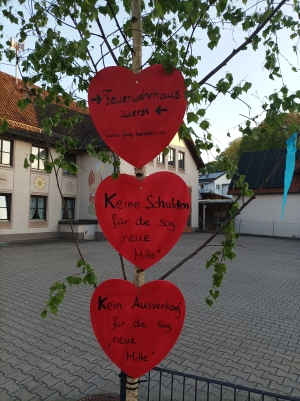 →Feuerwehrhaus
zuerst ←
Keine Schulden
für die sog
neue
Mitte"
Kein Ausverkauf
für die sog
"neue
Mitte"